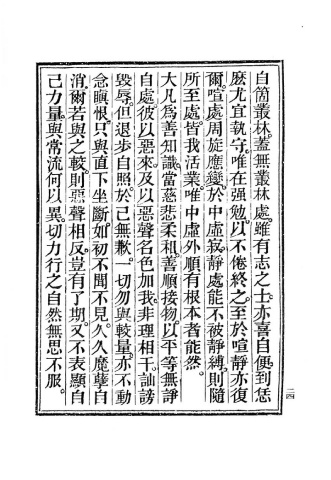 自箇叢林。蓋無叢林處。雖有志之士。亦喜自便。到恁
麽尤宜執守。唯在强勉。以不倦終之。至於喧靜亦復
爾。喧處周旋應變。於中虛寂。靜處能不被靜縛。則隨
所至處。皆我活業。唯中虛外順有根本者能然。
大凡為善知識。當慈悲柔和。善順接物。以平等無諍
自處。彼以惡來及以惡聲名色加我。非理相干。訕謗
毀辱。但退步自照。於己無歉。一切勿與較量。亦不動
念瞋恨。只與直下坐斷。如初不聞不見。久久魔孽自
消爾。若與之較。則惡聲相反。豈有了期。又不表顯自
己力量。與常流何以異。切力行之。自然無思不服。
二四